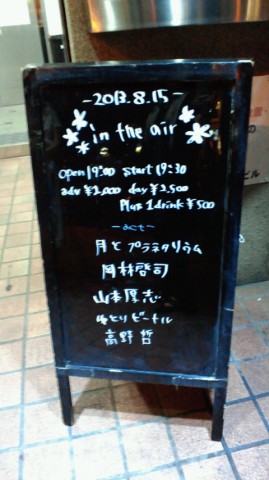 -2013.8.15-
in the air
open 19:00 start 19:30
adv ¥2,000 day ¥2,500
Plus 1drink ¥500
-act-
月とプラネタリウム
岡林啓司
山本厚志
ビートル
高野 哲
ビル